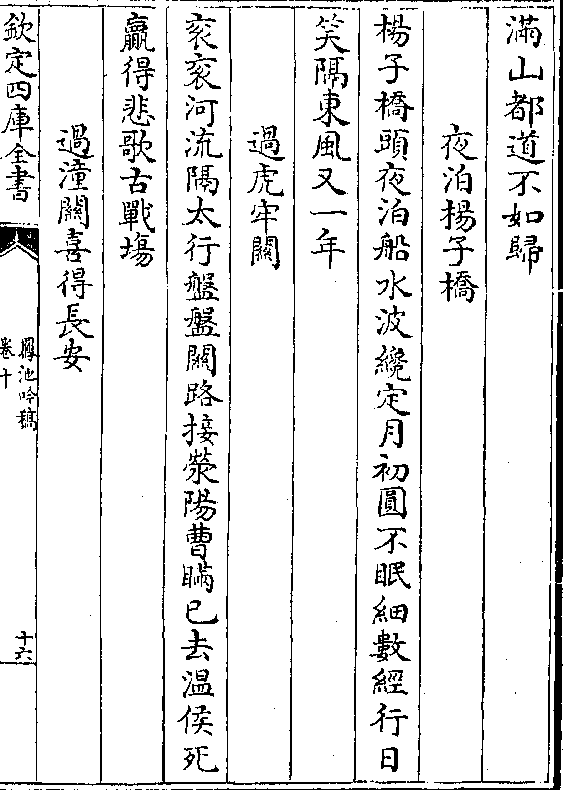 滿山都道不如歸
夜泊楊子橋
楊子橋頭夜泊船水波纔定月初圓不眠細數經行日
笑隔東風又一年
過虎牢關
衮衮河流隔太行盤盤關路接滎陽曹瞞已去温侯死
贏得悲歌古戰塲
過潼關喜得長安
欽定四庫全書
鳳池吟稿
卷十
十六